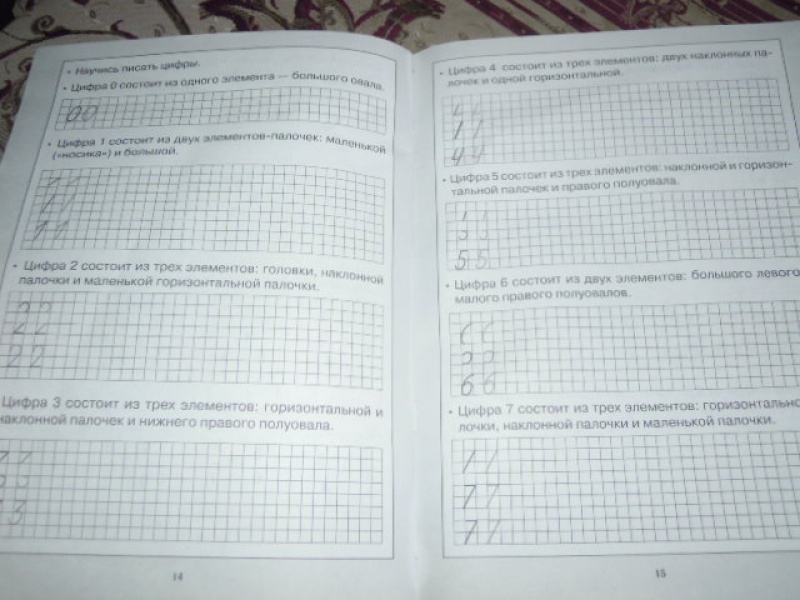 • Научись писать цифры.
• Цифра 0 состоит из одного элемента — большого овала.
00
• Цифра 1 состоит из двух элементов-палочек: маленькой
(«носика») и большой.
1 1
1 1
1 1
• Цифра 2 состоит из трех элементов: головки, наклонной
палочки и маленькой горизонтальной палочки.
2 2
2 2
2 2
Цифра 3 состоит из трех элементов: горизонтальной и
наклонной палочек и нижнего правого полуовала.
3
14
• Цифра 4 состоит из трех элементов: двух наклонных па-
лочек и одной горизонтальной.
4 4
• Цифра 5 состоит из трех элементов: наклонной и горизон-
тальной палочек и правого полуовала.
5 5
• Цифра 6 состоит из двух элементов: большого левого
малого правого полуовалов.
6 6
• Цифра 7 состоит из трех элементов: горизонтальн
лочки, наклонной палочки и маленькой палочки.
7 7
7 7
15